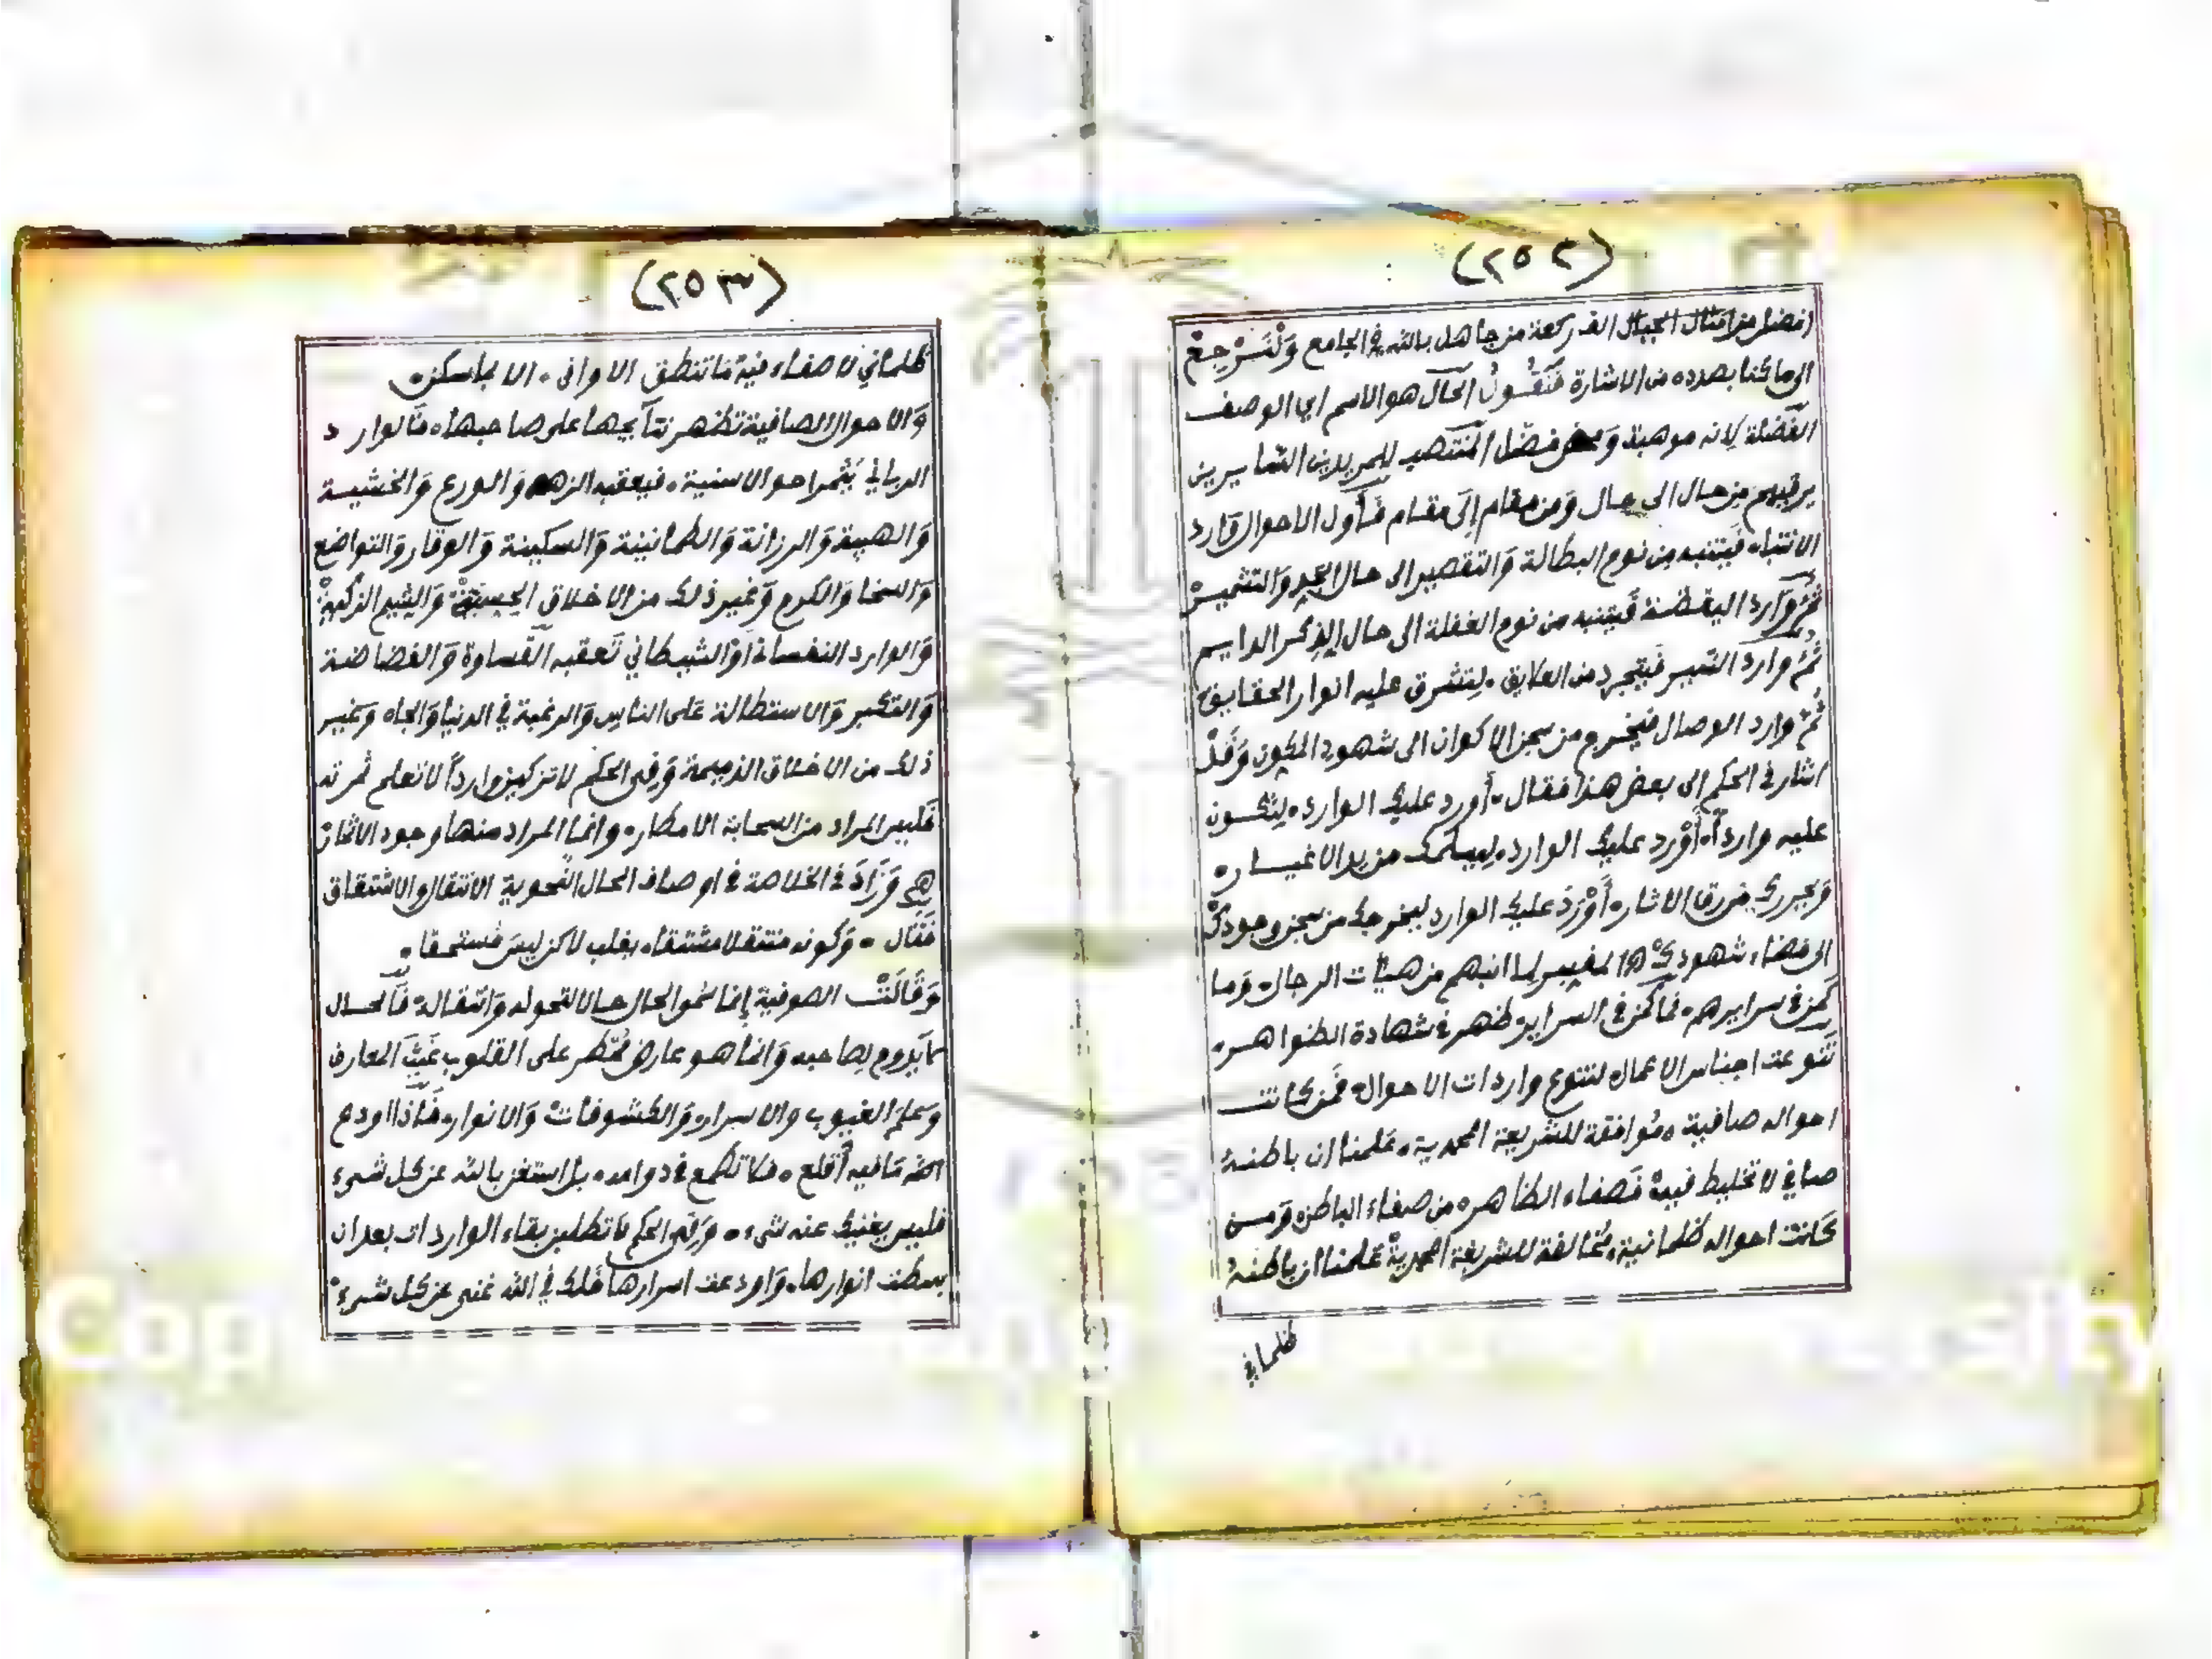 (٢٥٢)
افضل من امثال الجبال الف ركعة من جاهل بالله في الجامع وَلْنَرْجِعْ
الى ما كنا بصدده من الاشارة فَنَقُولُ الحال هو الاسم اي الوصف
الفَضْلة لانه موهبة وَمحض فضل المنتصب للمريدين السايرين
يرقيهم من حال الى حال وَمن مقام إلَى مقام فَأول الاحوال وَارد
الانتباه فَيتنبه من نوم البطالة وَالتقصير الى حال الجد وَالتشمير
ثُمَّ وَارد اليقظة فَيتنبه من نوم الغفلة الى حال الذكر الدايم
ثُمَّ وارد السير فَيتجرد من العلايق. لِتشرق عليه انوار الحقايق
ثُمَّ وارد الوصال فيخرج من سجن الاكوان الى شهود المكون وَقَدْ
اشار في الحكم الى بعض هذا فقال. أورد عليك الوارد. لِتكون
عليه وارداً. أَوْرد عليك الوارد. لِيسلمك من يد الاغيار.
وَيحررك من رق الاثار. أَوْرَدَ عليك الوارد ليخرجك من سجن وجودك
الى فضاء شهودك هـ المغيبر لما انبهم من هيئات الرجال. وَما
كَمن في سرايرهم. فما كَمن في السراير. ظهر في شهادة الظواهر.
تَنوعت اجناس الاعمال لتنوع واردات الاحوال. فَمن كانت
احواله صافية. مُوافقة للشريعة المحمدية. عَلمنا ان باطنهُ
صافي لا تخليط فيه. فَصفاء الظاهر. من صفاء الباطن. وَمن
كَانت احواله ظلمانية. مُخالفة للشريعة المحمدية عَلمنا ان باطنهُ
ظلماني
(٢٥٣)
ظلماني لا صفاء فيه فَما تنطق الاواني. الا بما سكن.
وَالاحوال الصافية تظهر نتآيجها على صاحبها. فَالوارد
الرباني يُثمر احوالا سنية. فيعقبه الزهد وَالورع وَالخشية
وَالهيبة وَالرزانة وَالطمانينة وَالسكينة وَالوقار وَالتواضع
وَالسخا وَالكرم وَغير ذلك من الاخلاق الحسنة وَالشيم الزكية
وَالوارد النفساني اوْ الشيطاني تَعقبه القساوة وَالفضاضة
وَالتكبر وَالاستطالة عَلى الناس وَالرغبة في الدنيا وَالجاه وَغير
ذلك من الاخلاق الذميمة وَفي الحكم لا تزكين وارداً لا تعلم ثمرته
فَليس المراد من السحابة الامطار. وانما المراد منها وجود الاثمار
هـ وَزَادَ في الخلاصة في اوصاف الحال النحوية الانتقال والاشتقاق
فَقال. وَكونه منتقلا مشتقا. يغلب لاكن ليس مُستحقا.
وَقَالَتْ الصوفية إنما سُمو الحال حالا لتحوله وَانتقاله. فَالحال
لا يَدوم بصاحبه وَانما هو عارض مُمْطر على القلوب غَيْثَ المعارف
وَعلمَ الغيوب والاسرار. وَالكشوفات وَالانوار. فَاذا اودع
الله مَا فيه أَقلع. فلا تطمع في دوامه. بل استغن بالله عن كل شيء
فليس يغنيك عنه شيء. وَفي الحكم لا تطلبن بقاء الواردات بعد ان
بسطت انوارها. وَاودعت اسرارها فَلك في الله غنى عن كل شيء